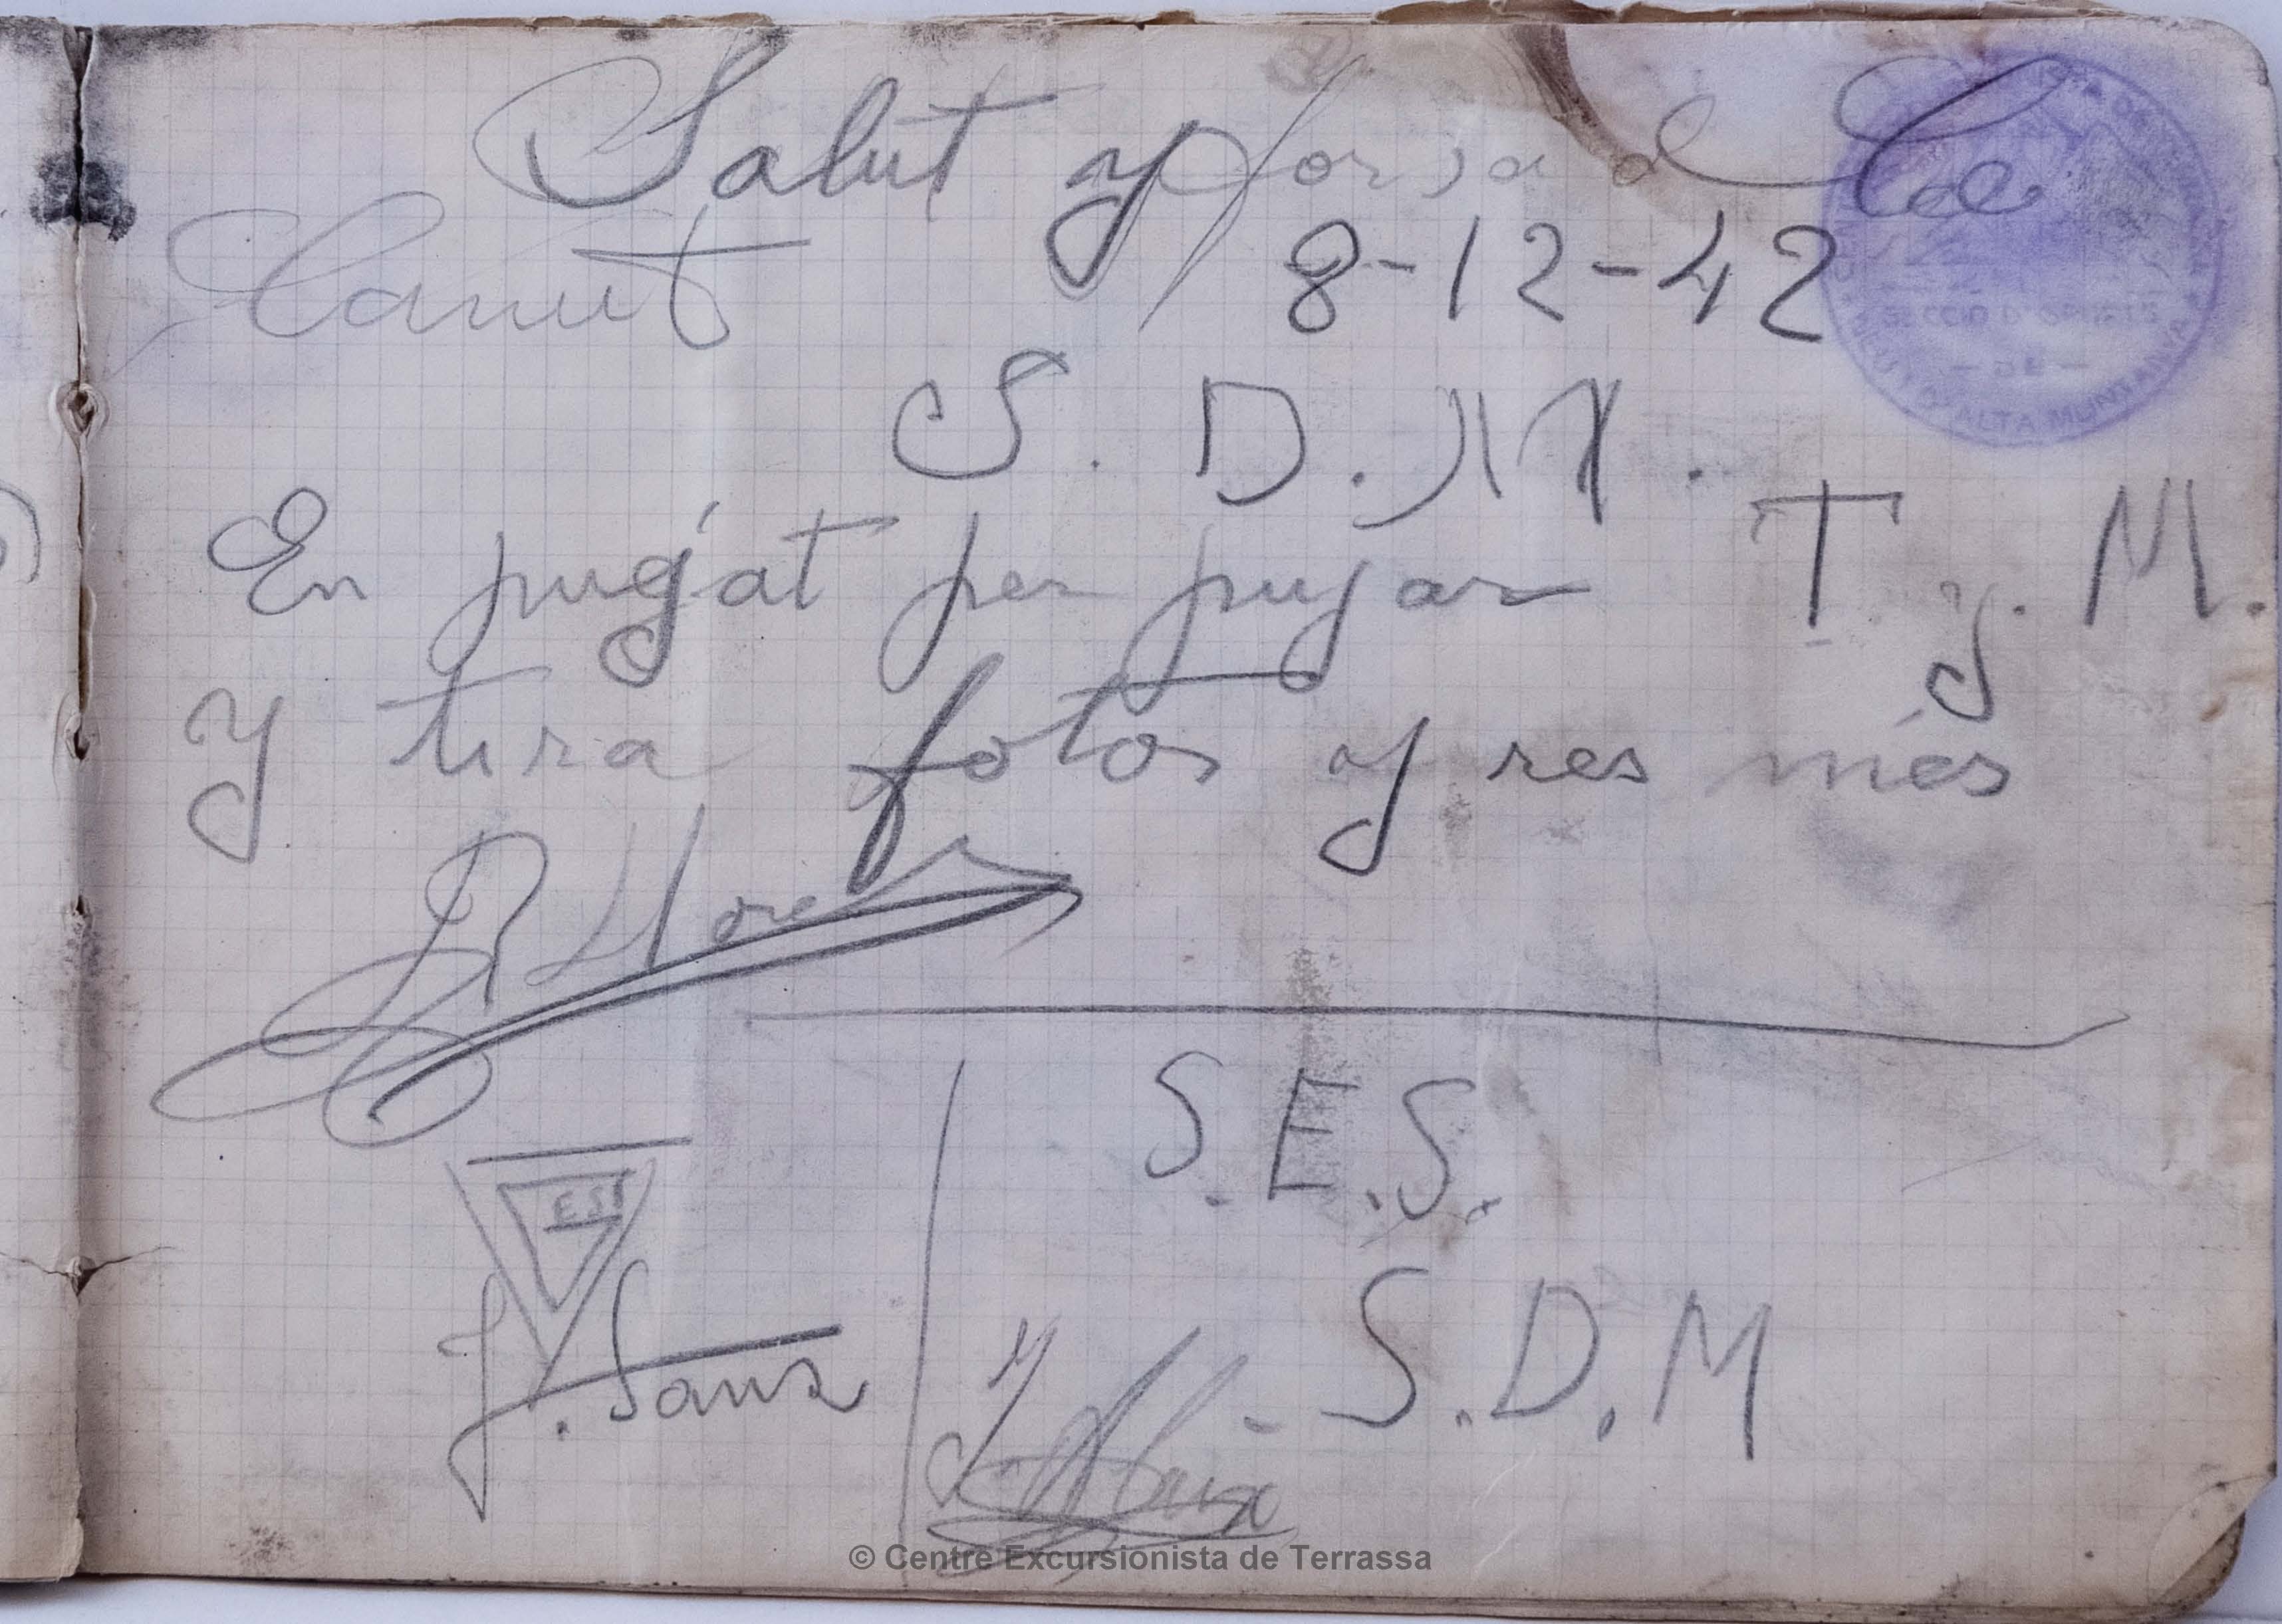 Salut y forsa al Ce
Canut 8-12-42
S. D. M.
En pugat per pujar T. y M.
y tira fotos y res més
S.E.S.
J. Sanz
S.D.M
SECCIÓ D'ESPORTS
- DE -
ALTA MUNTANYA
© Centre Excursionista de Terrassa